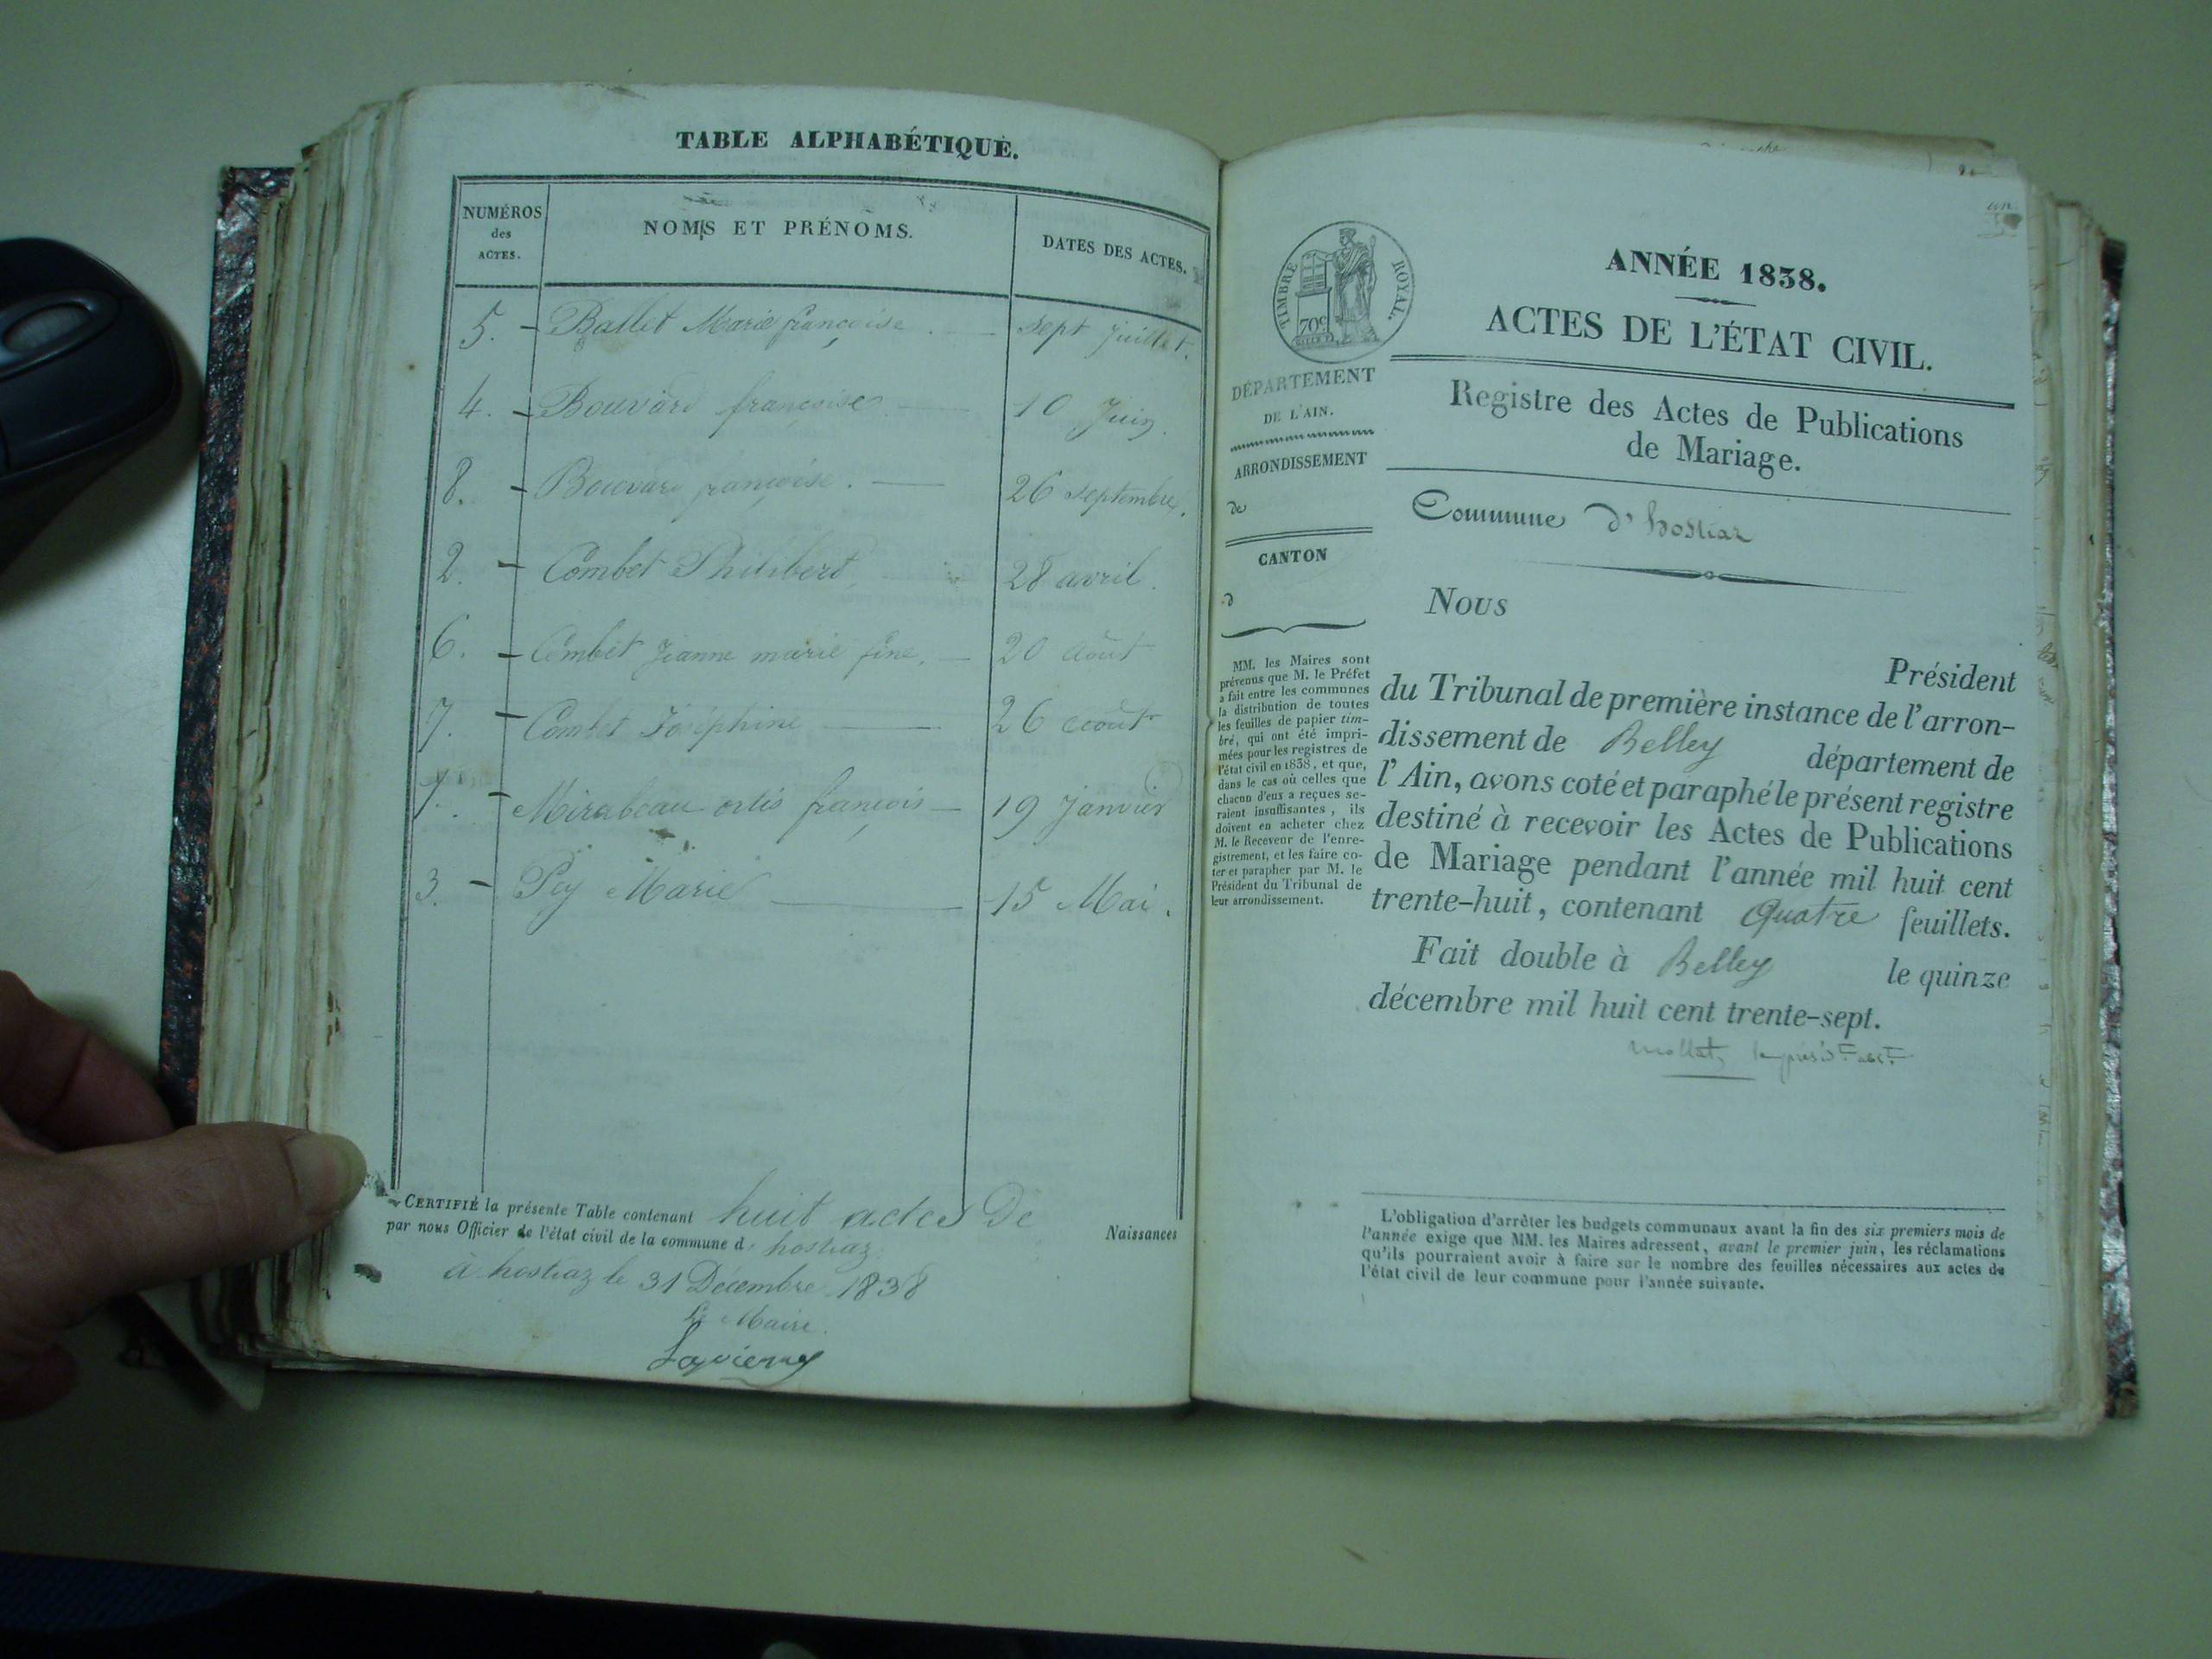 TABLE ALPHABÉTIQUE.
NUMÉROS
des
ACTES.
NOMS ET PRÉNOMS.
DATES DES ACTES.
5. Ballet Marie françoise sept juillet.
4. Bouvard françoise 10 Juin.
8. Bouvard françoise. 26 septembre.
2. Combet Philibert 28 avril.
6. Combet Jeanne marie fine. 20 août
7. Combet Joséphine 26 août
1. Mirabeau ortis françois 19 Janvier
3. Pey Marie 15 Mai.
CERTIFIÉ la présente Table contenant huit actes De Naissances
par nous Officier de l'état civil de la commune d. hostiaz.
à hostiaz le 31 Décembre 1838
Le Maire.
TIMBRE ROYAL.
70c
ANNÉE 1838.
ACTES DE L'ÉTAT CIVIL.
DÉPARTEMENT
DE L'AIN.
ARRONDISSEMENT
de
CANTON
d
MM. les Maires sont
prévenus que M. le Préfet
a fait entre les communes
la distribution de toutes
les feuilles de papier tim-
bré, qui ont été impri-
mées pour les registres de
l'état civil en 1838, et que,
dans le cas où celles que
chacun d'eux a reçues se-
raient insuffisantes, ils
doivent en acheter chez
M. le Receveur de l'enre-
gistrement, et les faire co-
ter et parapher par M. le
Président du Tribunal de
leur arrondissement.
Registre des Actes de Publications
de Mariage.
Commune d'hostiaz
Nous
Président
du Tribunal de première instance de l'arron-
dissement de Belley département de
l'Ain, avons coté et paraphé le présent registre
destiné à recevoir les Actes de Publications
de Mariage pendant l'année mil huit cent
trente-huit, contenant Quatre feuillets.
Fait double à Belley le quinze
décembre mil huit cent trente-sept.
L'obligation d'arrêter les budgets communaux avant la fin des six premiers mois de
l'année exige que MM. les Maires adressent, avant le premier juin, les réclamations
qu'ils pourraient avoir à faire sur le nombre des feuilles nécessaires aux actes de
l'état civil de leur commune pour l'année suivante.